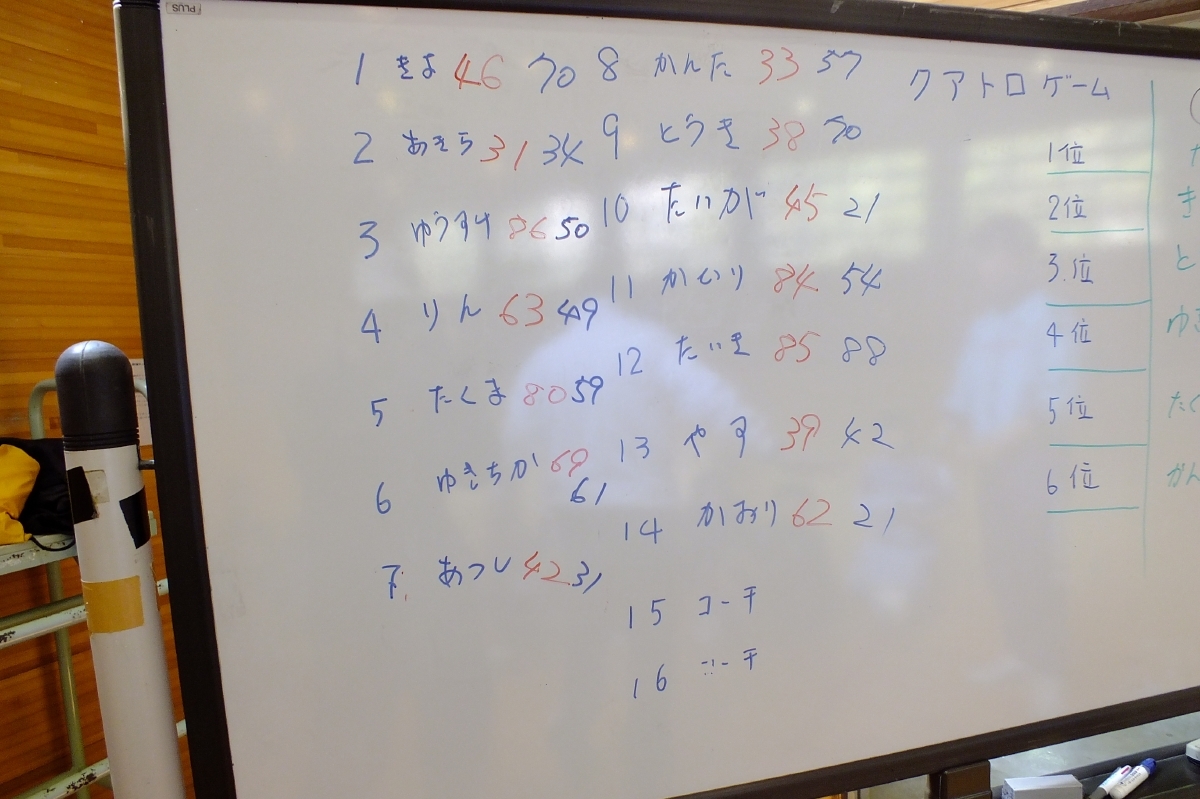 PLUS
1 きよ 46 70
2 あきら 31 34
3 ゆうすけ 86 50
4 りん 63 49
5 たくま 80 59
6 ゆきちか 69
61
7 あつし 42 31
8 かんた 33 57
9 とうき 38 70
10 たいが 45 21
11 かいり 84 54
12 たいき 85 88
13 やす 39 42
14 かおり 62 21
15 コーチ
16 コーチ
クアトロゲーム
1位
2位
3位
4位
5位
6位
き
と
ゆき
たく
かん